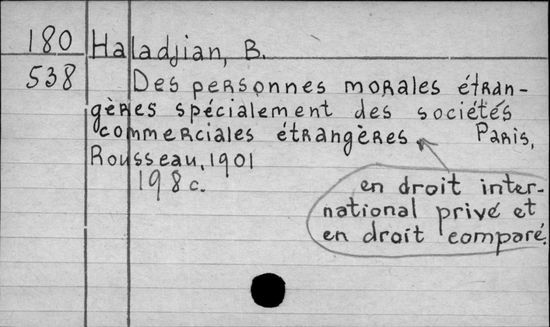 180 Haladjian, B.
538 Des personnes morales étran-
gères spécialement des sociétés
commerciales étrangères Paris,
Rousseau, 1901
198 c.
en droit inter-
national privé et
en droit comparé.